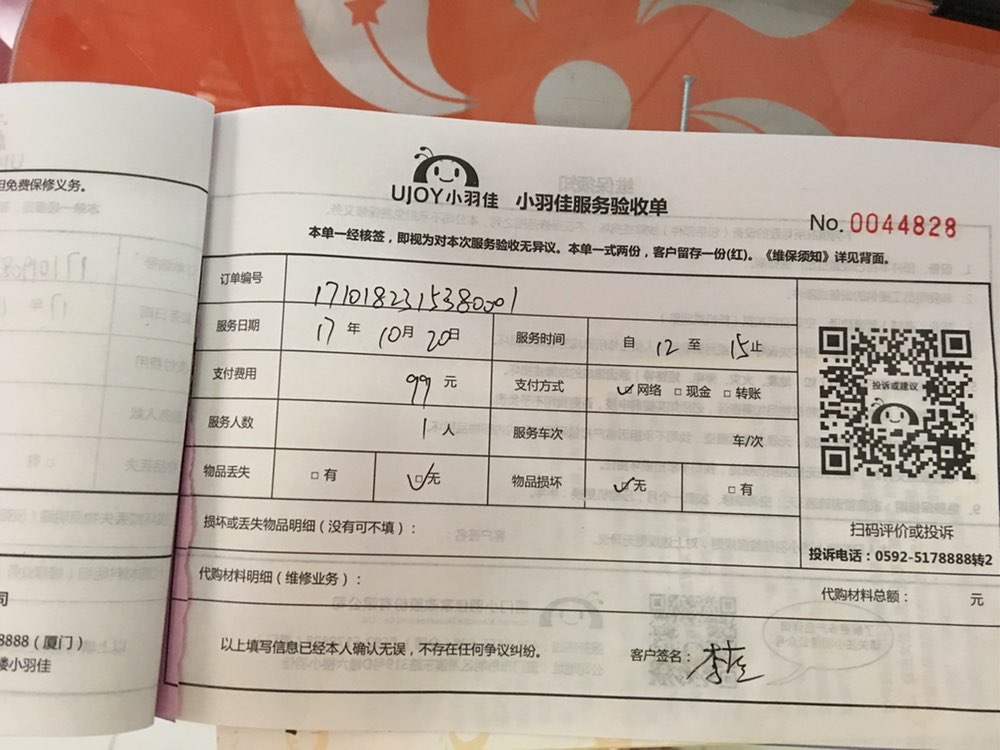 UJOY小羽佳 小羽佳服务验收单
No. 0044828
本单一经核签，即视为对本次服务验收无异议。本单一式两份，客户留存一份(红)。《维保须知》详见背面。
订单编号 1710182315380001
服务日期 17 年 10月 20日 服务时间 自 12 至 15止
支付费用 99 元 支付方式 ☑网络 □现金 □转账
服务人数 1 人 服务车次 车/次
物品丢失 □有 ☑无 物品损坏 ☑无 □有
损坏或丢失物品明细（没有可不填）：
代购材料明细（维修业务）：
代购材料总额： 元
以上填写信息已经本人确认无误，不存在任何争议纠纷。 客户签名：
投诉或建议
扫码评价或投诉
投诉电话：0592-5178888转2
免费保修义务。
司
8888（厦门）
楼小羽佳